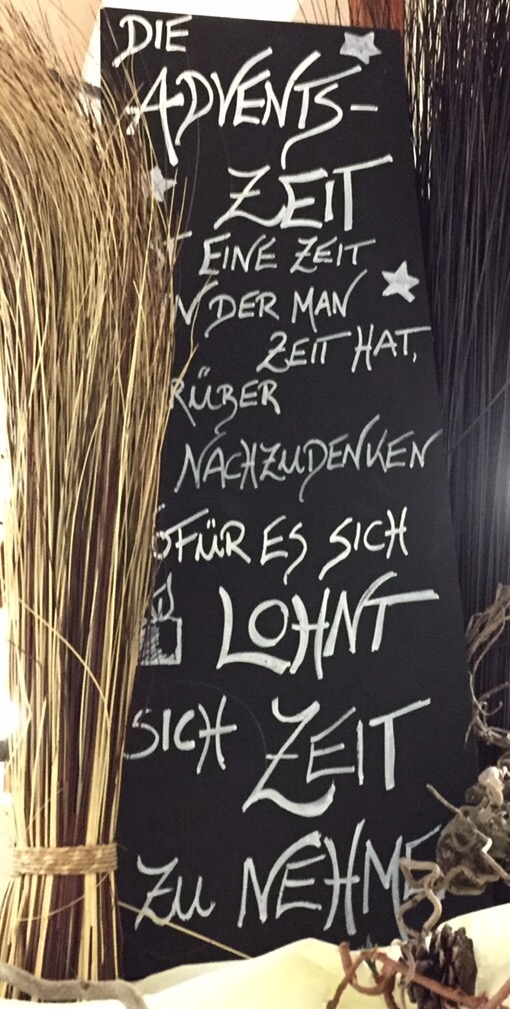 DIE
ADVENTS-
ZEIT
T EINE ZEIT
N DER MAN
ZEIT HAT,
RÜBER
NACHZUDENKEN
OFÜR ES SICH
LOHNT
SICH ZEIT
ZU NEHME